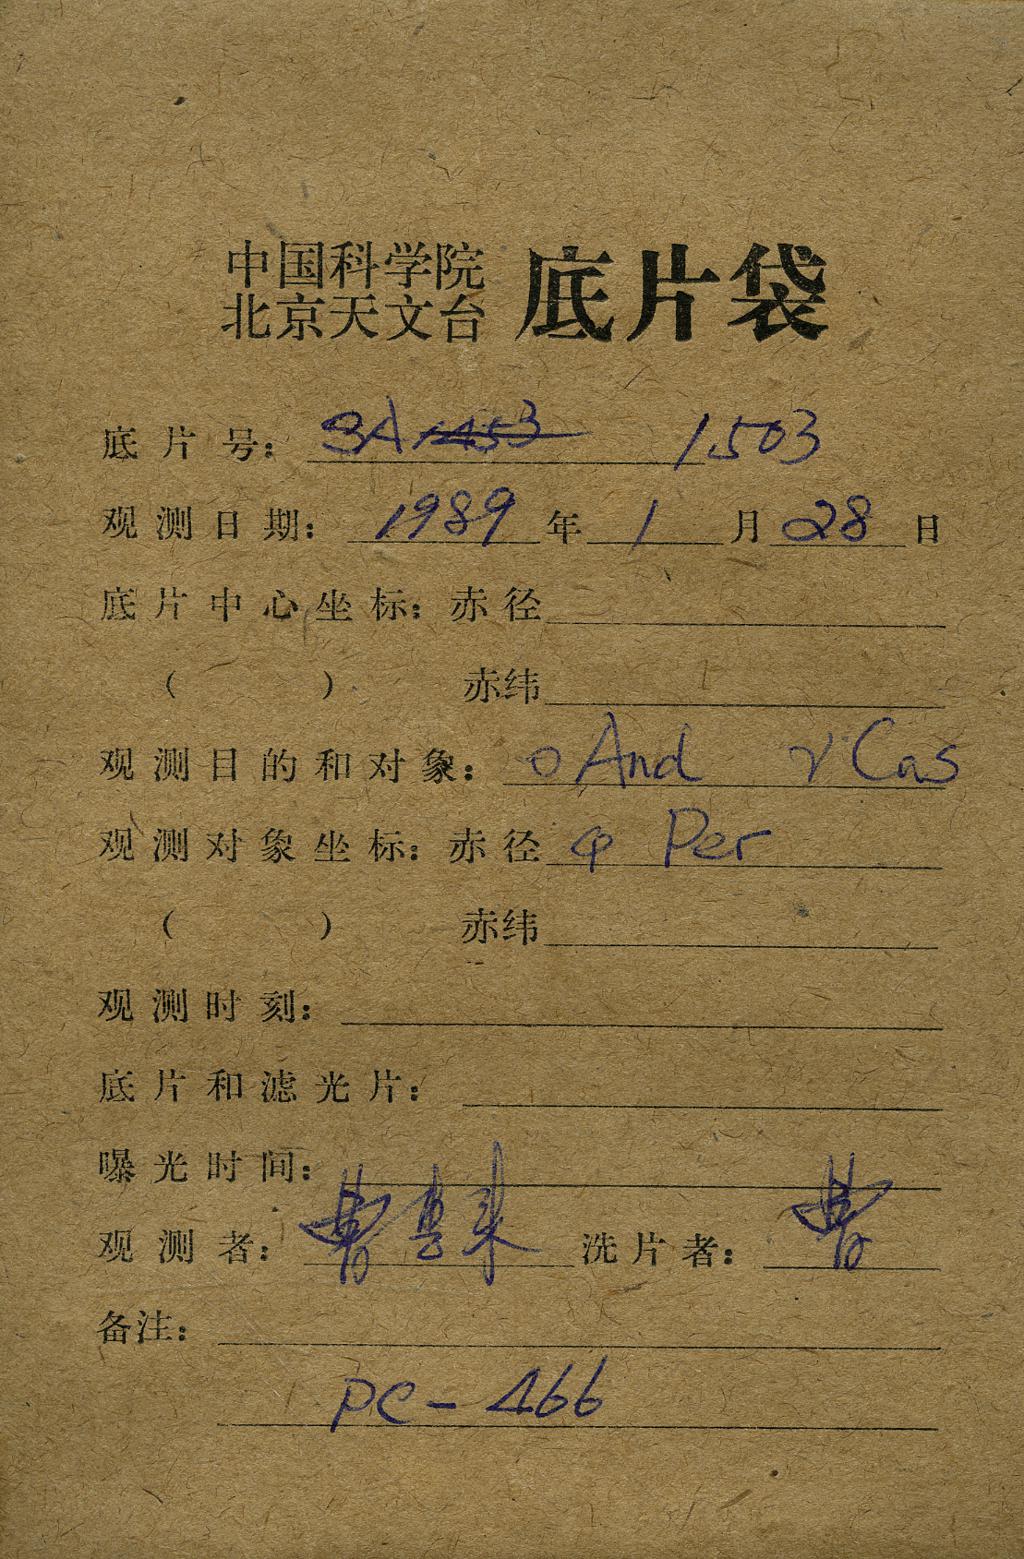 中国科学院
北京天文台
底片袋
底片号: 3A 1453 1503
观测日期: 1989 年 1 月 28 日
底片中心坐标: 赤径
( ) 赤纬
观测目的和对象: o And γ Cas
观测对象坐标: 赤径 φ Per
( ) 赤纬
观测时刻:
底片和滤光片:
曝光时间:
观测者: 曹 洗片者: 曹
备注:
PC-466